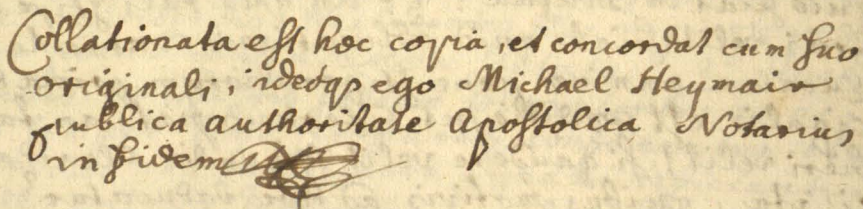 Collationata est hæc copia, et concordat cum suo
originali; ideoqȝ ego Michael Heymair
publica authoritate Apostolica Notarius
in fidem